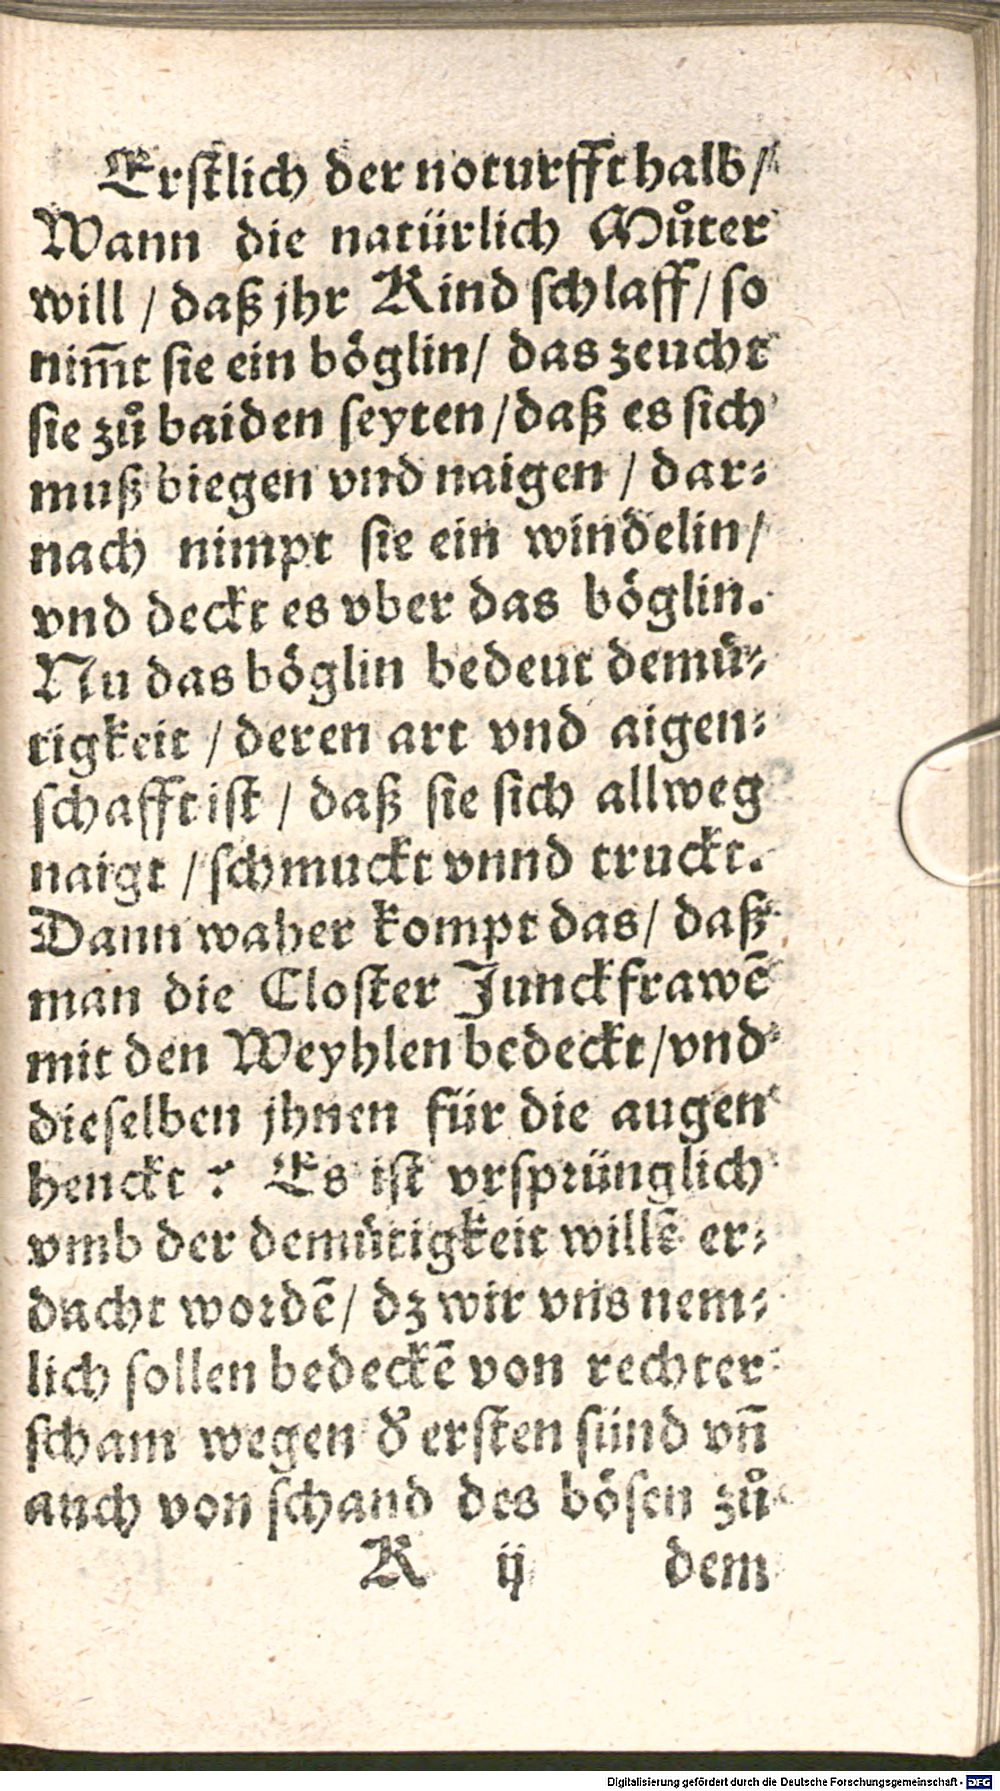 Erſtlich der noturfft halb/
Wann die natürlich Můter
will / daß jhr Kind ſchlaff / ſo
nim̅t ſie ein böglin / das zeucht
ſie zů baiden ſeyten / daß es ſich
muß biegen vnd naigen / dar⸗
nach nimpt ſie ein windelin /
vnd deckt es vber das böglin.
Nu das böglin bedeut demü⸗
tigkeit / deren art vnd aigen⸗
ſchafft iſt / daß ſie ſich allweg
naigt / ſchmuckt vnnd truckt.
Dann waher kompt das / daß
man die Cloſter Junckfrawē
mit den Weyhlen bedeckt / vnd
dieſelben jhnen für die augen
henckt? Es iſt vrſprünglich
vmb der demütigkeit willē er⸗
dacht wordē / dz wir vns nem⸗
lich ſollen bedeckē von rechter
ſcham wegen d' erſten ſünd vn̅
auch von ſchand des böſen zů
K ij dem
Digitalisierung gefördert durch die Deutsche Forschungsgemeinschaft - DFG